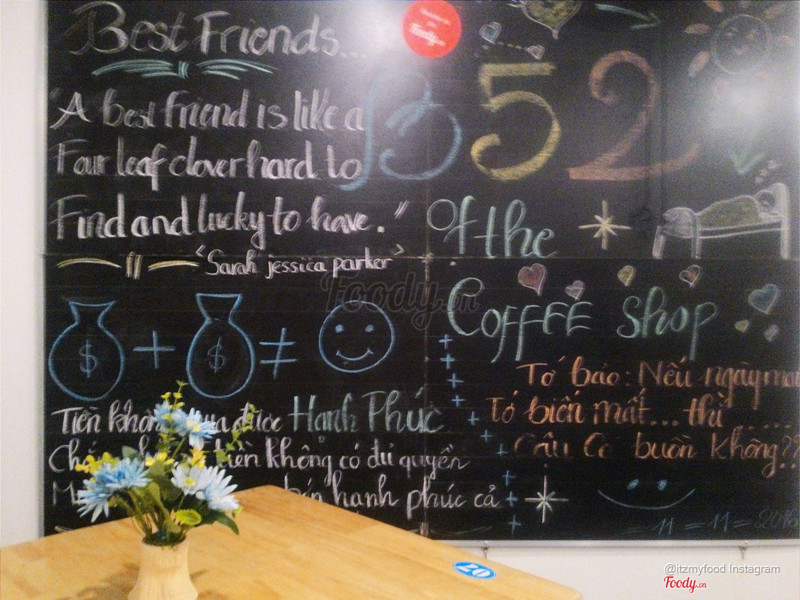 Best Friends...
"A best friend is like a
Four leaf clover hard to
Find and lucky to have."
"Sarah jessica parker"
$ + $ ≠
Tiền không được Hạnh Phúc
tiền không có đủ quyền
bán hạnh phúc cả
Foody.vn
B52
Of the
COFFEE Shop
Tớ bảo: Nếu ngày mai
Tớ biến mất... thì ....
Cậu Có buồn không??
11 = 11 = 2016
20
Foody.vn
@itzmyfood Instagram
Foody.vn